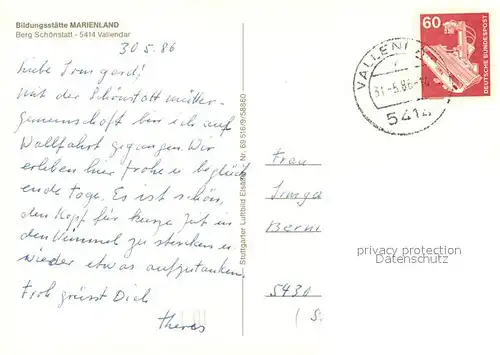 Bildungsstätte MARIENLAND
Berg Schönstatt - 5414 Vallendar
30.5.86
Liebe Irmgard!
Mit der Schönstattmütter-
gemeinschaft bin ich auf
Wallfahrt gegangen. Wir
erleben hier frohe u. beglück
ende Tage. Es ist schön,
den Kopf für kurze Zeit in
den Himmel zu stecken u.
wieder etwas aufzutanken.
Froh grüsst Dich
Theres
Stuttgarter Luftbild Elsäßer Nr. 69 516/9/58860
60
DEUTSCHE BUNDESPOST
VALLEN
31.-5.86
5414
Frau
Irmga
Bern
privacy protection
Datenschutz
5430